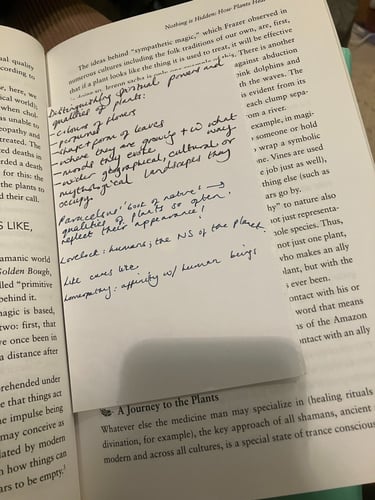 Nothing is Hidden: How Plants Heal
The ideas behind "sympathetic magic," which Frazer observed in
numerous cultures including the folk traditions of our own, are, first,
that if a plant looks like the thing it is used to treat, it will be effective
There is another
against abduction
nk dolphins and
th the waves. The
is evident from its
each clump sepa-
om a river.
example, in magi-
someone or hold
wrap a symbolic
ne. Vines are used
e job just as well),
thing else (such as
ars go by.
hy" to nature also
not just representa-
ole species. Thus,
not just one plant,
who makes an ally
plant, but with the
s ever been.
contact with his or
word that means
ns of the Amazon
ontact with an ally
Distinguishing spiritual powers and
qualities of plants:
- colours of flowers
- perfumes
- shape + form of leaves
- where they are growing + in what way
- moods they evoke
- wider geographical, cultural or
mythological landscapes they
occupy.
Paracelsus' 'book of nature' →
qualities of plants so often
reflect their appearance!
Lovelock: humans; the NS of the planet.
Like cures like
homeopathy: affinity w/ human beings
A Journey to the Plants
Whatever else the medicine man may specialize in (healing rituals
divination, for example), the key approach of all shamans, ancient
modern and across all cultures, is a special state of trance conscious
ual quality
ccording to
e, here, we
ical world);
when chol-
as unable to
mpathy and
treated. The
ted deaths in
rded a death
for this: the
the plants to
d their call.
S LIKE,
amanic world
Golden Bough,
lled "primitive
behind it.
magic is based,
two: first, that
ve once been in
a distance after
rehended under
e that things act
he impulse being
may conceive as
lated by modern
n how things can
ars to be empty.